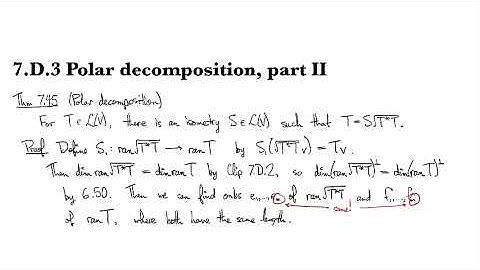 7.D.3 Polar decomposition, part II
Thm 7.45 (Polar decomposition)
For T∈L(V), there is an isometry S∈L(V) such that T=S√T*T.
Proof Define S₁: ran√T*T → ranT by S₁(√T*T v) = Tv.
Then dim ran√T*T = dim ranT by Clip 7D.2, so dim(ran√T*T)^⊥ = dim(ranT)^⊥
by 6.50. Then we can find onbs e₁,...,eₘ of ran√T*T and f₁,...,fₘ
same!
of ranT, where both have the same length.